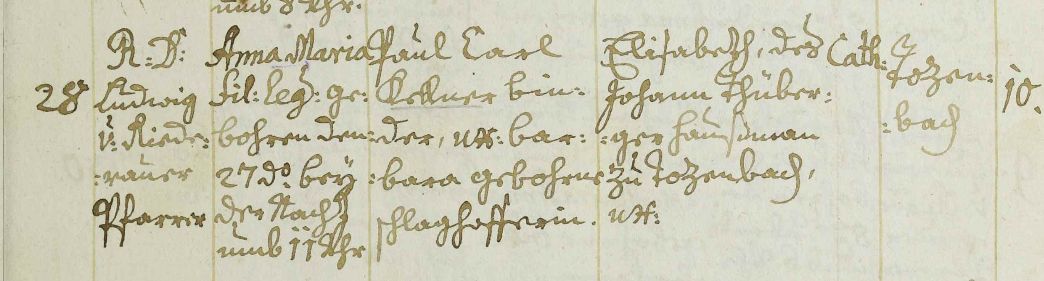 umb 8 Uhr.
28
R: D:
Ludwig
v: Riede:
:rauer
Pfarrer
Anna Maria
fil: leg: ge:
bohren den
27 do. bey
der Nacht
umb 11 Uhr
Paul Carl
Kellner bin:
:der, ux: bar:
:bara gebohrne
schlaghofferin.
Elisabeth, des
Johann Thüber:
:ger haußman
zu Tozenbach,
ux:
Cath:
Tozen:
:bach
10.